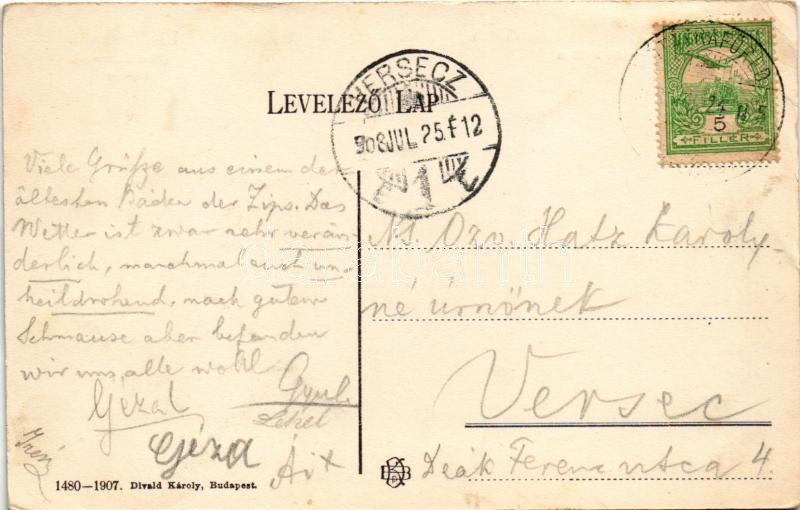 LEVELEZŐ LAP
VERSECZ
908 JUL. 25. F 12
1
24
5
FILLER
Viele Grüße aus einem der
ältesten Bäder der Zips. Das
Wetter ist zwar sehr verän-
derlich, manchmal auch un-
heildrohend, nach gutem
Schmause aber befanden
wir uns alle wohl.
Géza
Lehel
Géza
Irén
Ns. Özv. Hatz Károly
né úrnőnek
Versec
Deák Ferenc utca 4.
1480—1907. Divald Károly, Budapest.